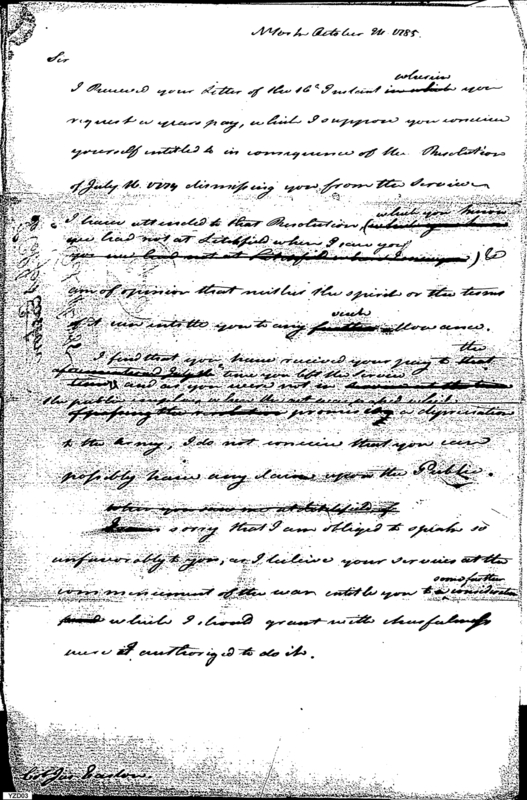 N York October 24 1785
Sir
wherein
I Received your Letter of the 16th Instant in which you
request a years pay, which I suppose you conceive
yourself entitled to in consequence of the Resolution
of July 1779 dismissing you from the Service
which you know
I have attended to that Resolution (
you had not at Litchfield when I saw you
) &
am of opinion that neither the spirit or the terms
such
of it can entitle you to any further allowance.
I find that you have received your pay to the
time you left the Service
and as you were not in
the public employ when the act was passed which
promises a depreciation
to the Army, I do not conceive that you can
possibly have any claim upon the Public.
when you saw me at Litchfield
I am sorry that I am obliged to speak so
unfavorably to you, as I believe your services at the
some further
commencement of the war entitle you to consideration
which I should grant with chearfulness
were I authorized to do it.
Col Jas Easton.
YZD03